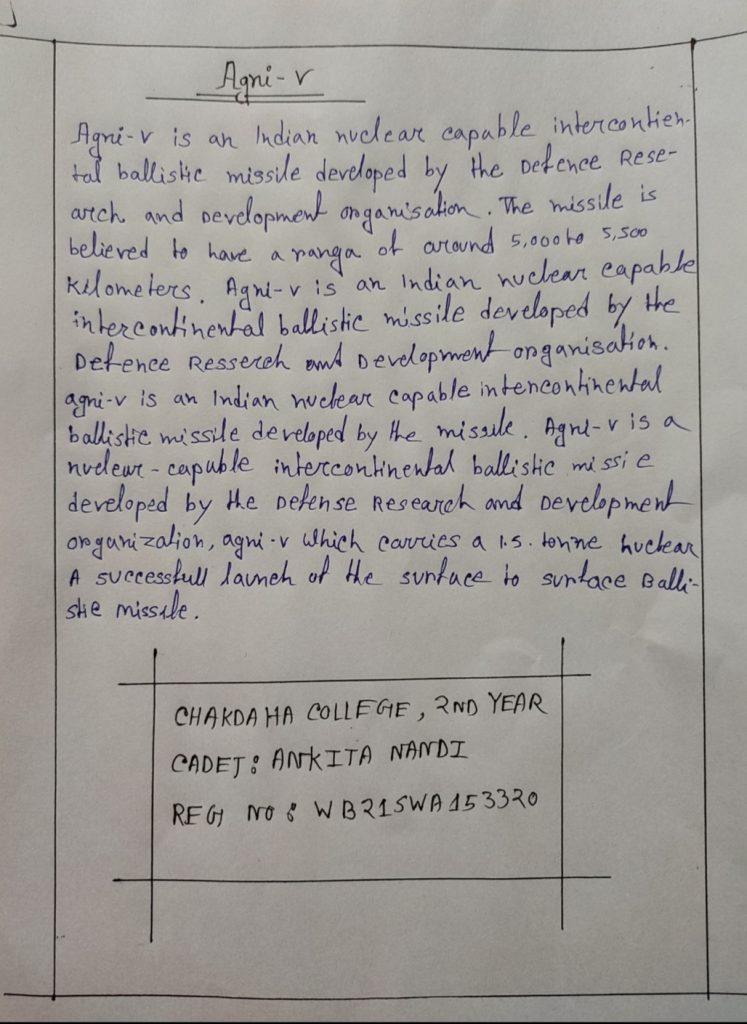 Agni-v
Agni-v is an Indian nuclear capable intercontien-
tal ballistic missile developed by the Defence Rese-
arch and Development organisation. The missile is
believed to have a ranga of around 5,000 to 5,500
Kilometers. Agni-v is an Indian nuclear capable
intercontinental ballistic missile developed by the
Defence Resserch and Development organisation.
agni-v is an Indian nuclear capable intercontinental
ballistic missile developed by the missile. Agni-v is a
nuclear-capable intercontinental ballistic missi e
developed by the Defense Research and Development
organization, agni-v which carries a 1.5. tonne nuclear
A successfull launch of the surface to surface Balli-
stie missile.
CHAKDAHA COLLEGE, 2ND YEAR
CADET: ANKITA NANDI
REG NO: WB21SWA153320